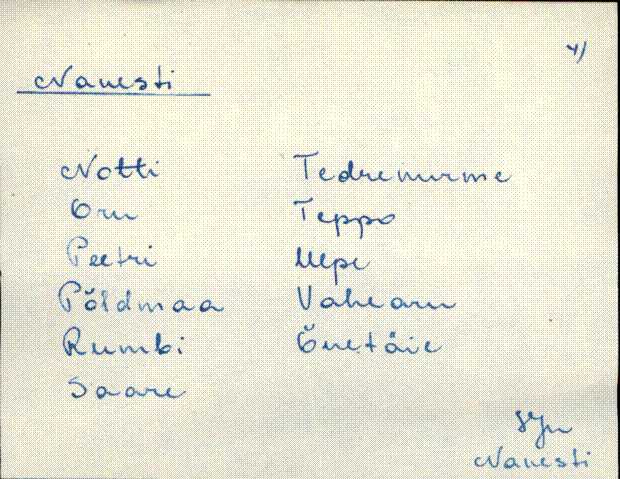 4)
Navesti
Notti Tedrenurme
Oru Teppo
Peetri
Põldmaa Vahearu
Rumbi
Saare
SJn
Navesti